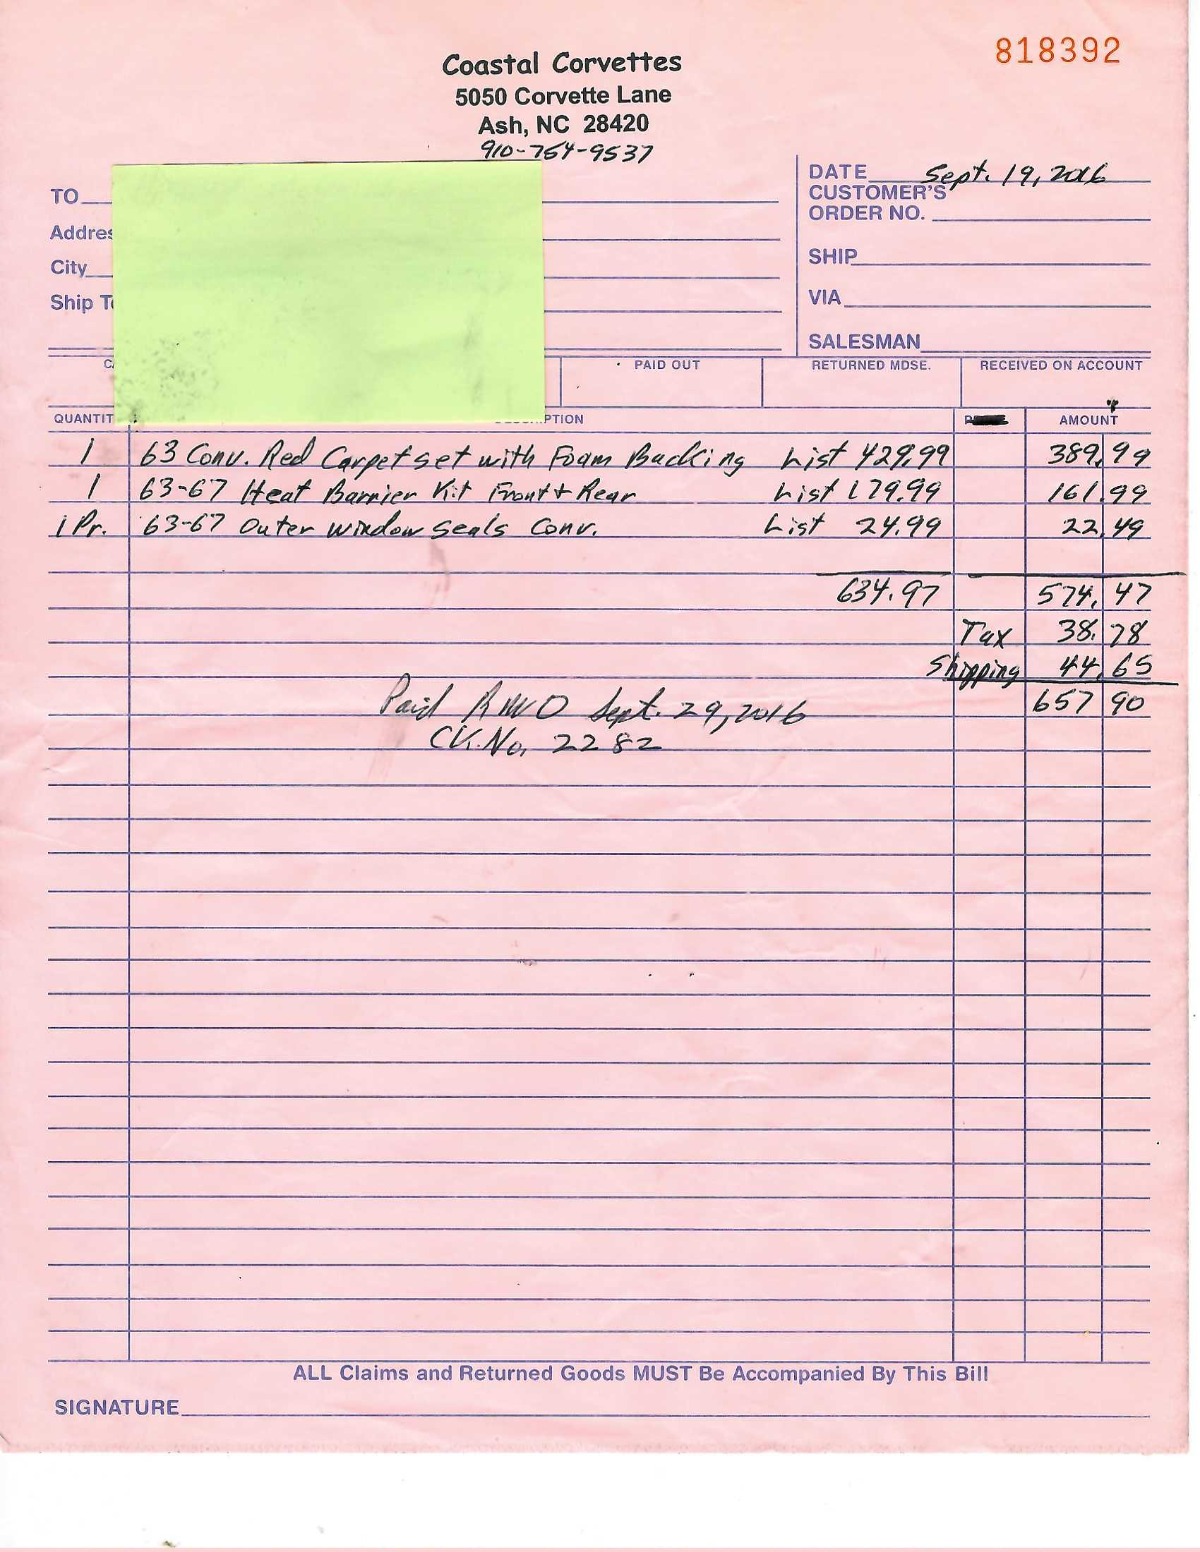 818392
Coastal Corvettes
5050 Corvette Lane
Ash, NC 28420
910-754-9537
TO
DATE Sept. 19, 2016
CUSTOMER'S
ORDER NO.
Addres
City
SHIP
Ship T
VIA
SALESMAN
PAID OUT RETURNED MDSE. RECEIVED ON ACCOUNT
QUANTIT PTION AMOUNT
1 63 Conv. Red Carpet set with Foam Backing List 429.99 389.99
1 63-67 Heat Barrier Kit Front + Rear List 179.99 161.99
1 Pr. 63-67 Outer Window Seals Conv. List 24.99 22.49
634.97 574.47
Tax 38.78
Shipping 44.65
657 90
Paid RWO Sept. 29, 2016
CK. No. 2282
ALL Claims and Returned Goods MUST Be Accompanied By This Bill
SIGNATURE